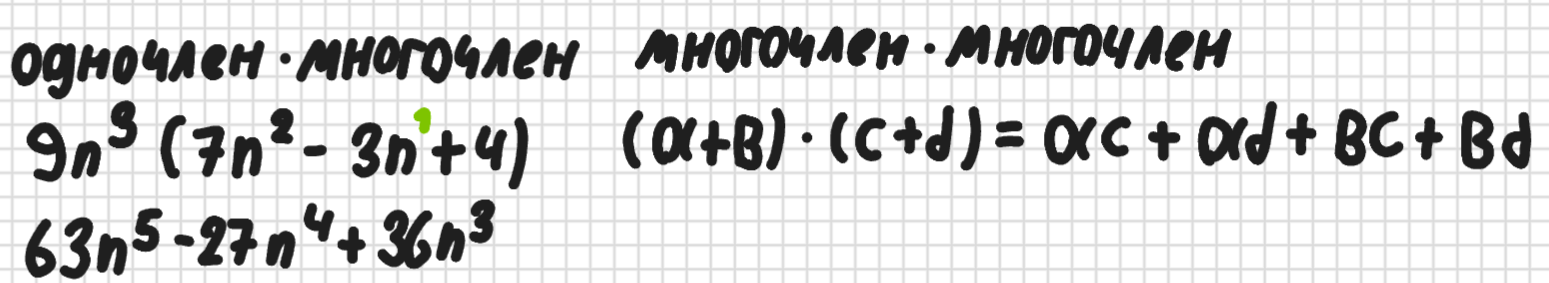 одночлен · многочлен
9n³ (7n² - 3n¹ + 4)
63n⁵ - 27n⁴ + 36n³
многочлен · многочлен
(a+b) · (c+d) = ac + ad + bc + bd